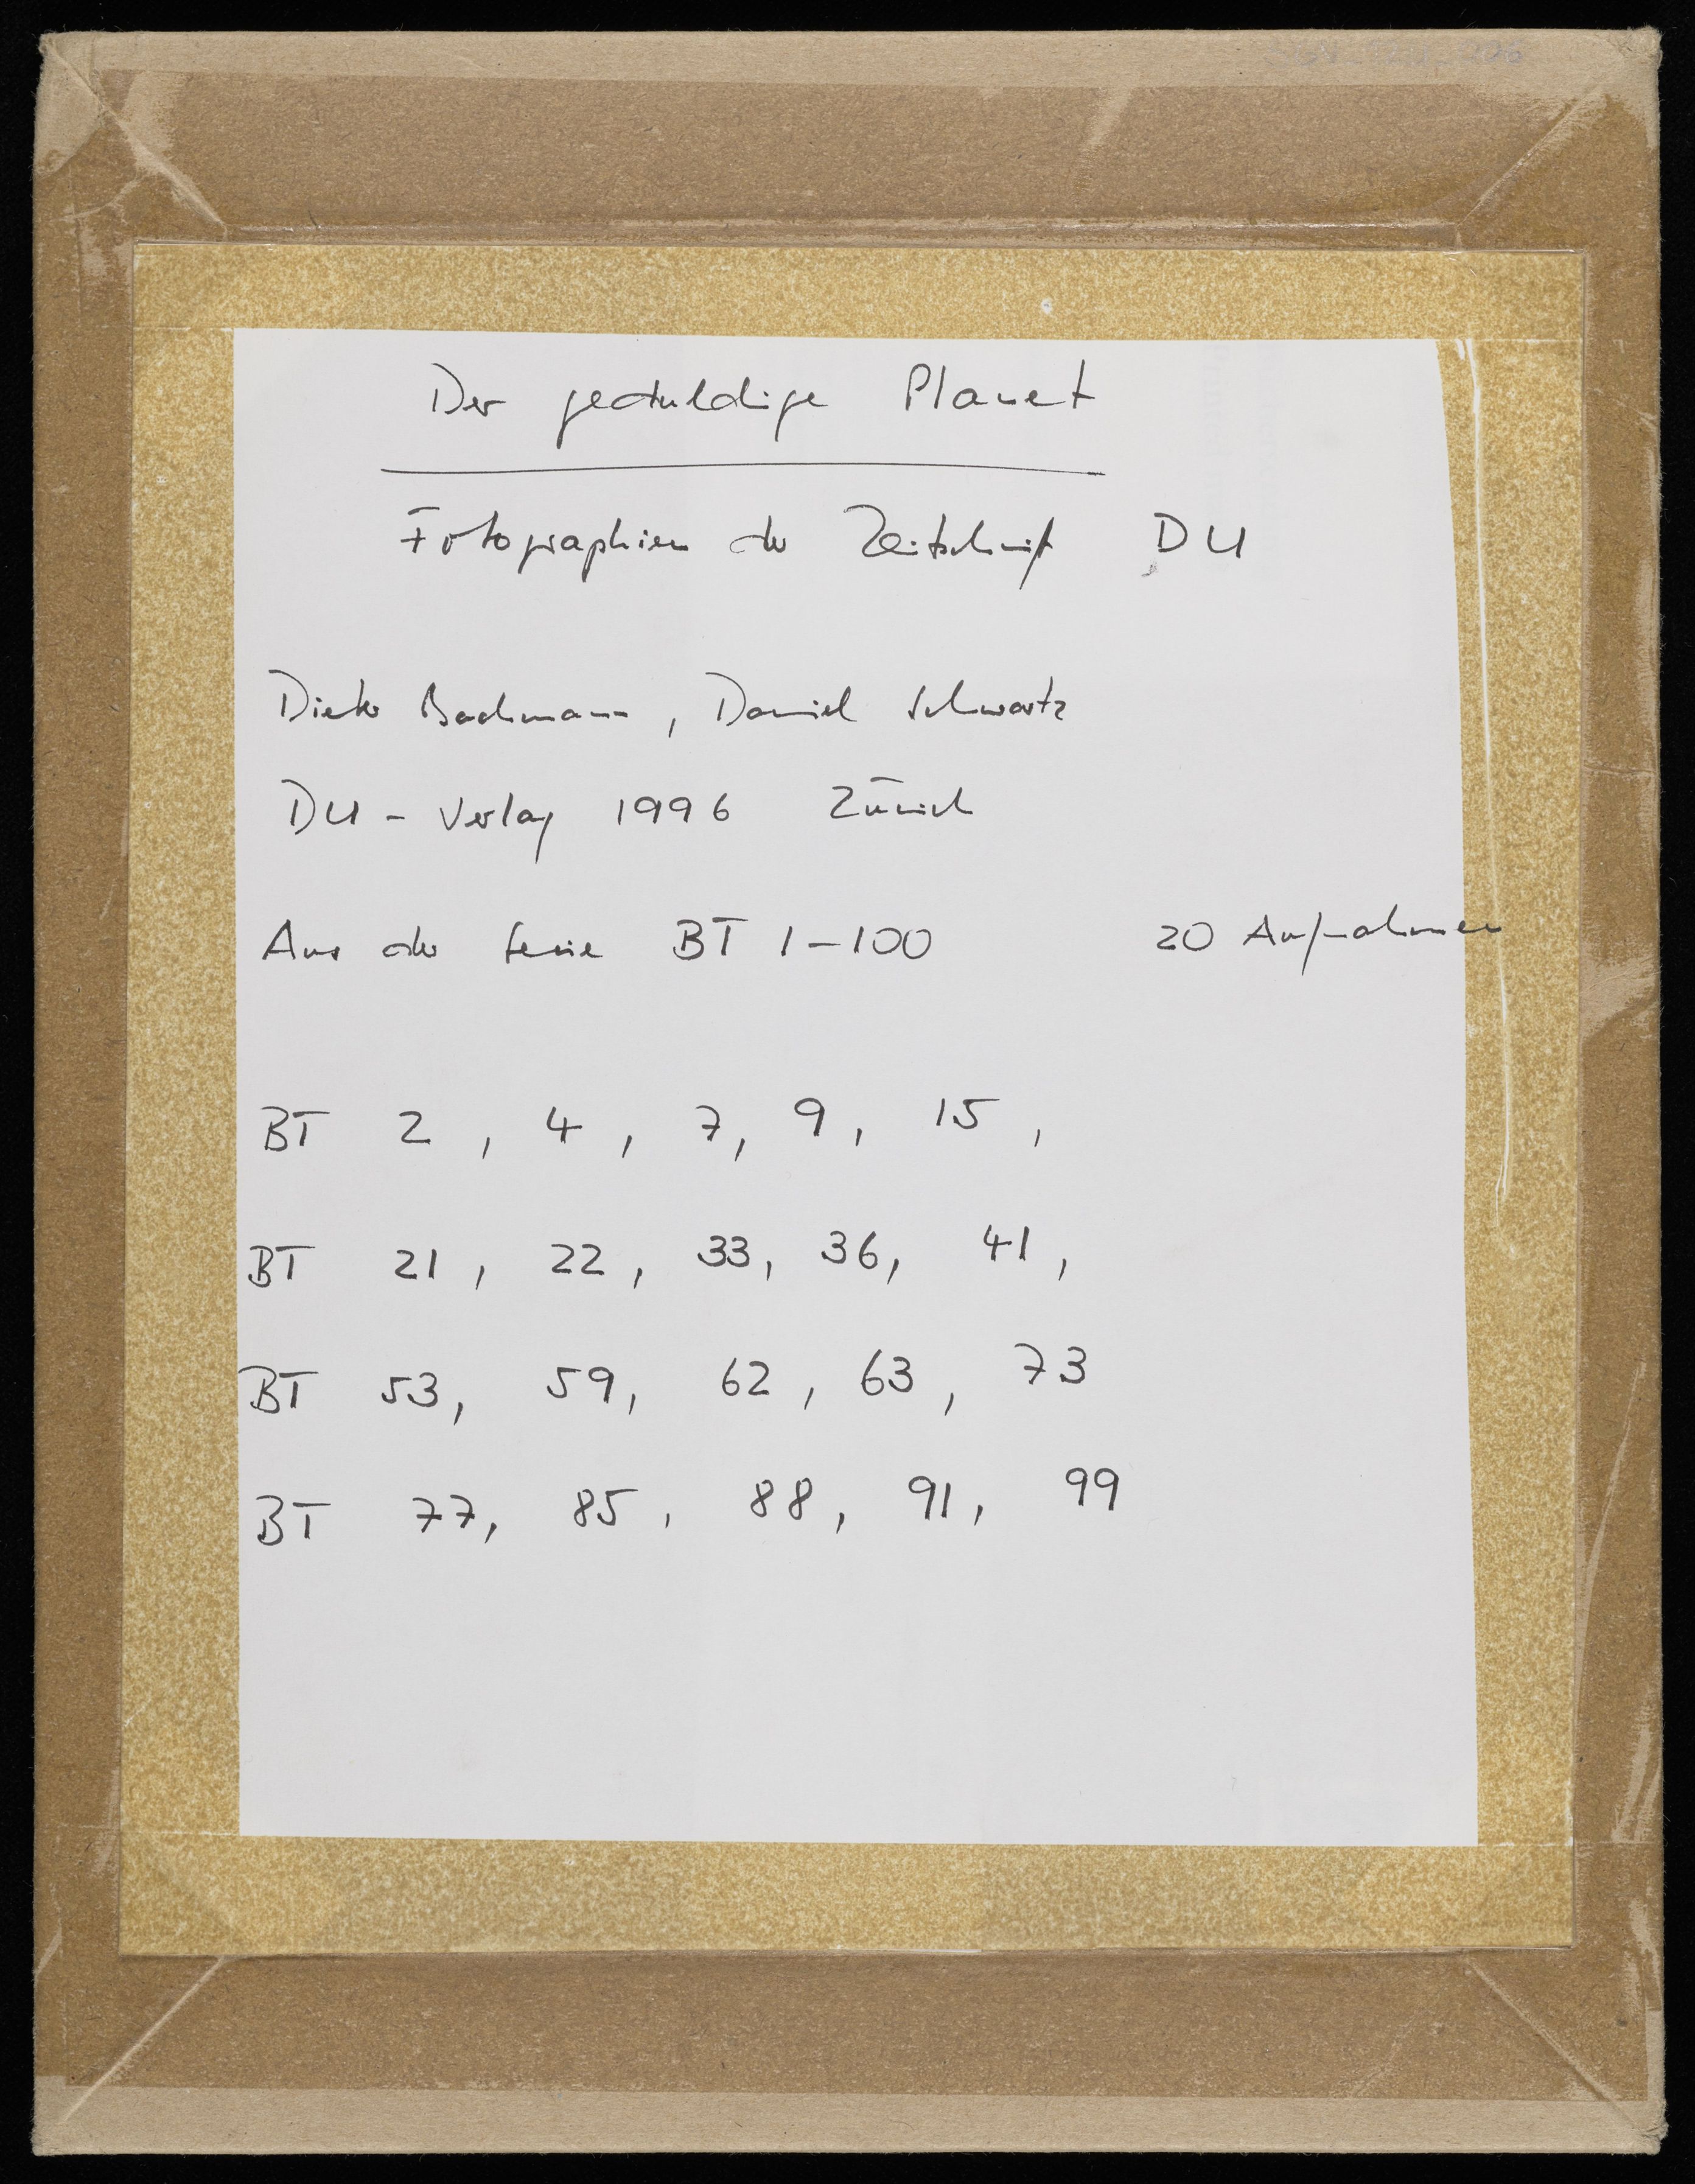 Der geduldige Planet
Fotographien der Zeitschrift DU
Dieter Bachmann, Daniel Schwartz
DU - Verlag 1996 Zürich
Aus der Serie BT 1-100 20 Aufnahmen
BT 2, 4, 7, 9, 15,
BT 21, 22, 33, 36, 41,
BT 53, 59, 62, 63, 73
BT 77, 85, 88, 91, 99